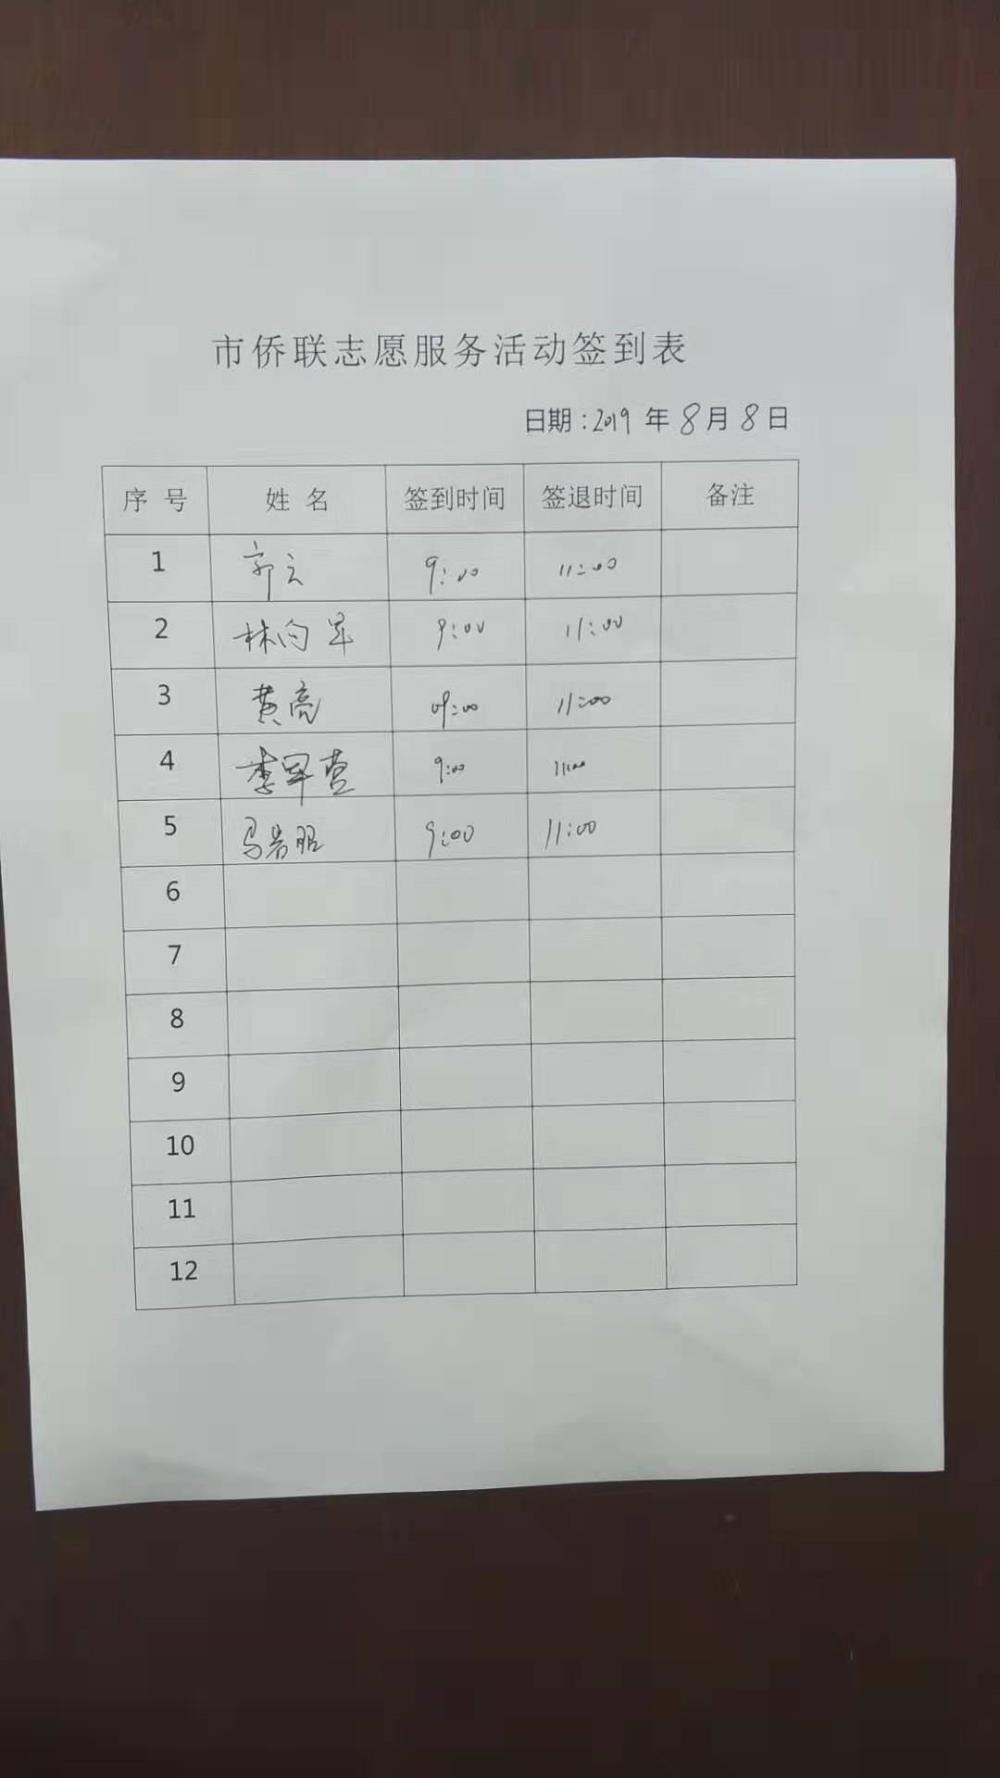 市侨联志愿服务活动签到表
日期：2019 年 8 月 8 日
序号 姓名 签到时间 签退时间 备注
1 郭云 9:00 11:00
2 林向军 9:00 11:00
3 黄亮 09:00 11:00
4 李军营 9:00 11:00
5 9:00 11:00
6
7
8
9
10
11
12